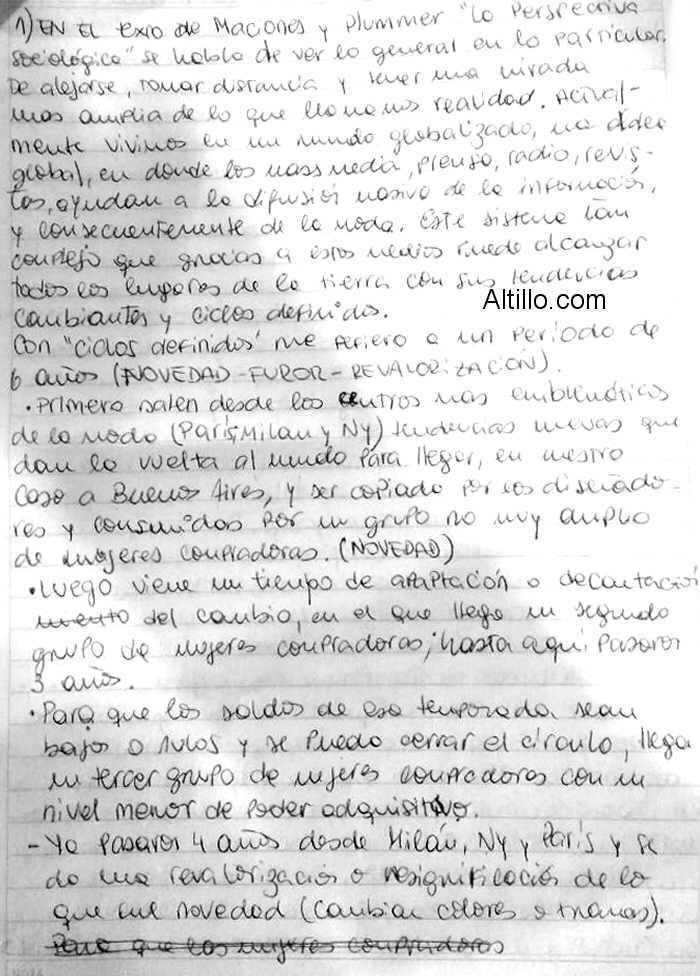 1) EN EL texto de Macones y Plummer "La Perspectiva
sociológica" se habla de ver lo general en lo particular.
De alejarse, tomar distancia y tener una mirada
mas amplia de lo que llamamos realidad. Actual-
mente vivimos en un mundo globalizado, una aldea
global, en donde los mass media, prensa, radio, revis-
tas, ayudan a la difusión masiva de la información,
y consecuentemente de la moda. Este sistema tan
complejo que gracias a estos medios puede alcanzar
todos los lugares de la tierra con sus tendencias
cambiantes y ciclos definidos.
Altillo.com
Con "ciclos definidos" me refiero a un periodo de
6 años (NOVEDAD-FUROR-REVALORIZACIÓN).
• Primero salen desde los centros mas emblemáticos
de la moda (París, Milan y NY) tendencias nuevas que
dan la vuelta al mundo para llegar, en nuestro
caso a Buenos Aires, y ser copiado por los diseñado-
res y consumidas por un grupo no muy amplio
de mujeres compradoras. (NOVEDAD)
• Luego viene un tiempo de adaptación o decantación
miento del cambio, en el que llega un segundo
grupo de mujeres compradoras; hasta aquí pasaron
3 años.
• Para que los saldos de esa temporada sean
bajos o nulos y se pueda cerrar el círculo, llega
un tercer grupo de mujeres compradoras con un
nivel menor de poder adquisitivo.
- Ya pasaron 4 años desde Milán, NY y París y se
da una revalorización o resignificación de lo
que fue novedad (cambian colores o tramas).
Para que las mujeres compradoras